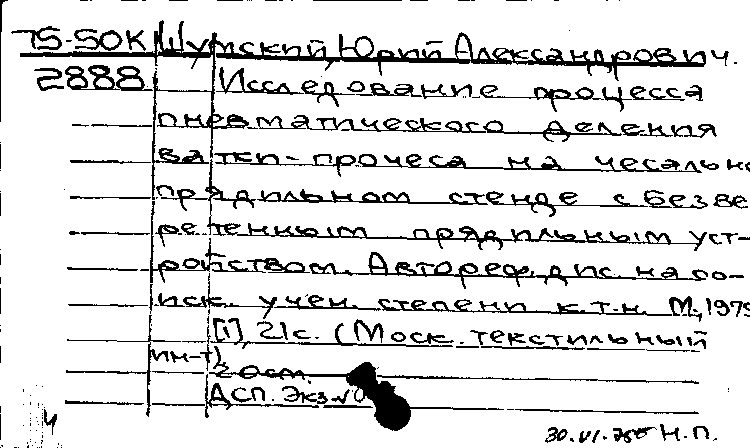 75-50К Шумский, Юрий Александрович.
2888 Исследование процесса
пневматического деления
ватки-прочеса на чесально
прядильном стенде с безве
ретенным прядильным уст-
ройством. Автореф. дис. на со-
иск. учен. степени к.т.н. М., 1975
[1], 21с. (Моск. текстильный
ин-т)
20см.
ДСП. Экз.
Н.П.